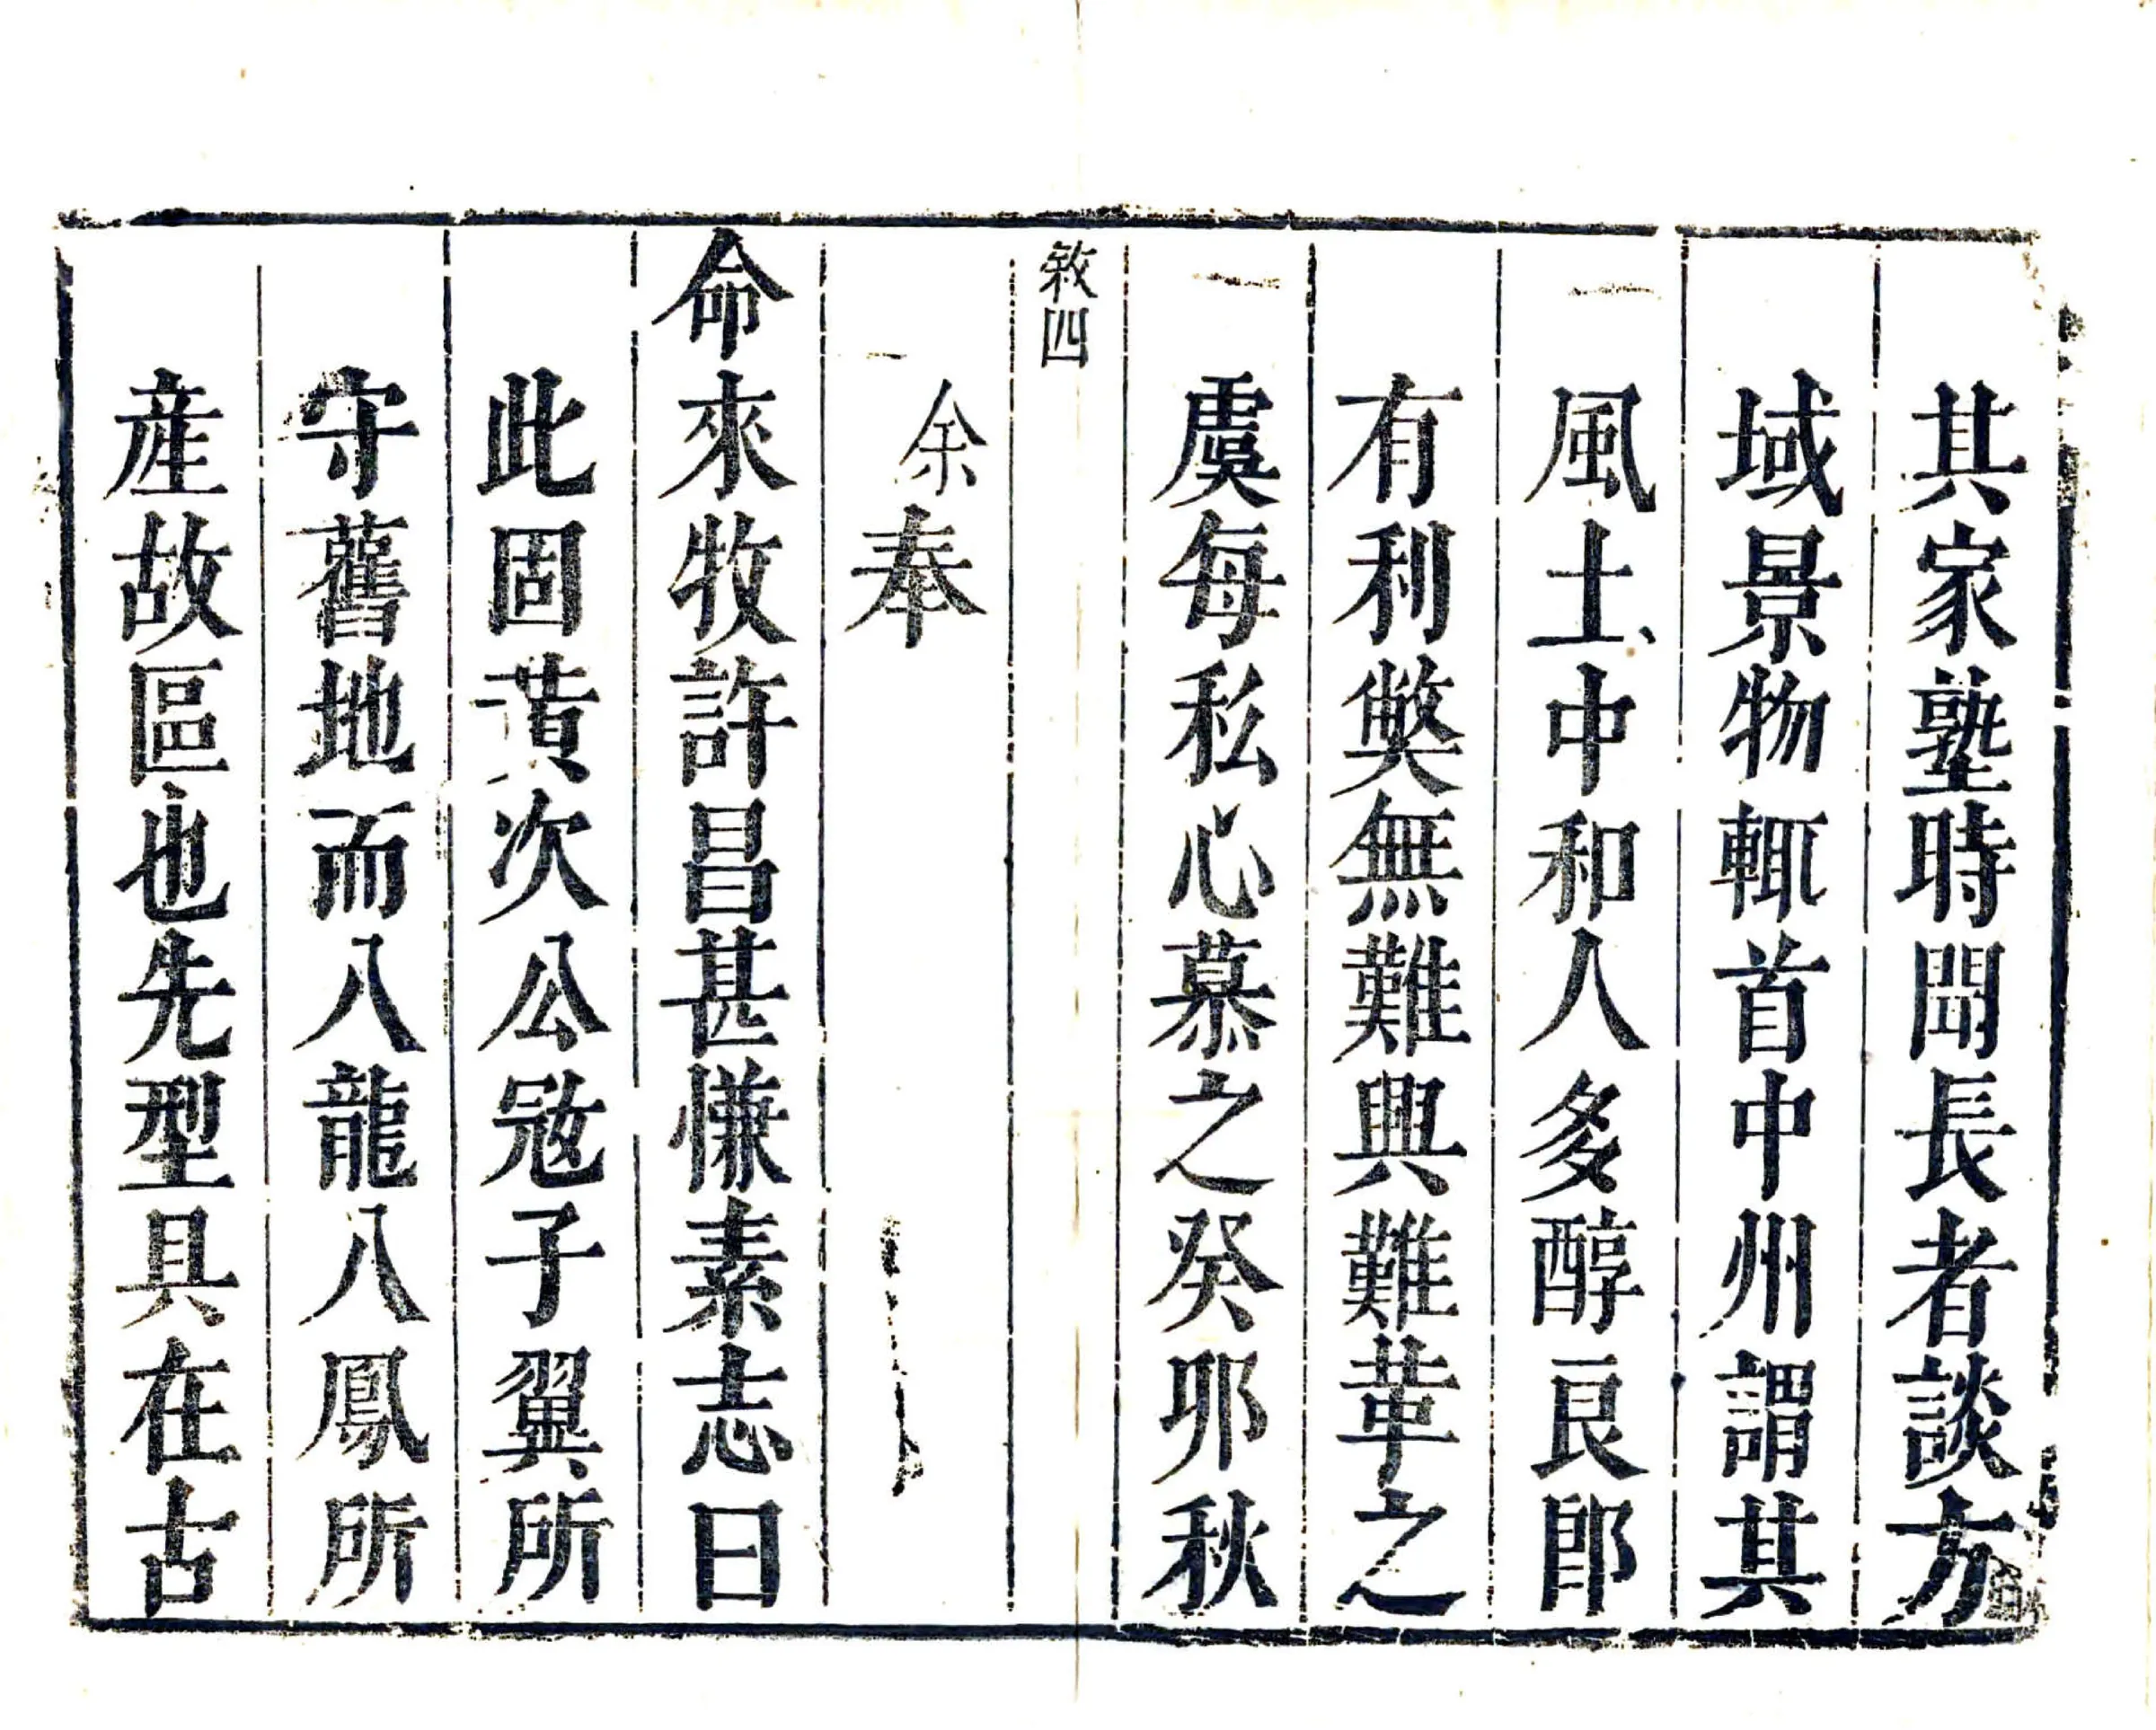 其家塾時聞長者談方
域景物輒首中州謂其
風土中和人多醇良郎
有利獘無難興難革之
虞每私心慕之癸卯秋
敘四
余奉
命來牧許昌甚慊素志曰
此固黄次公冦子翼所
守舊地而八龍八鳳所
産故區也先型具在古